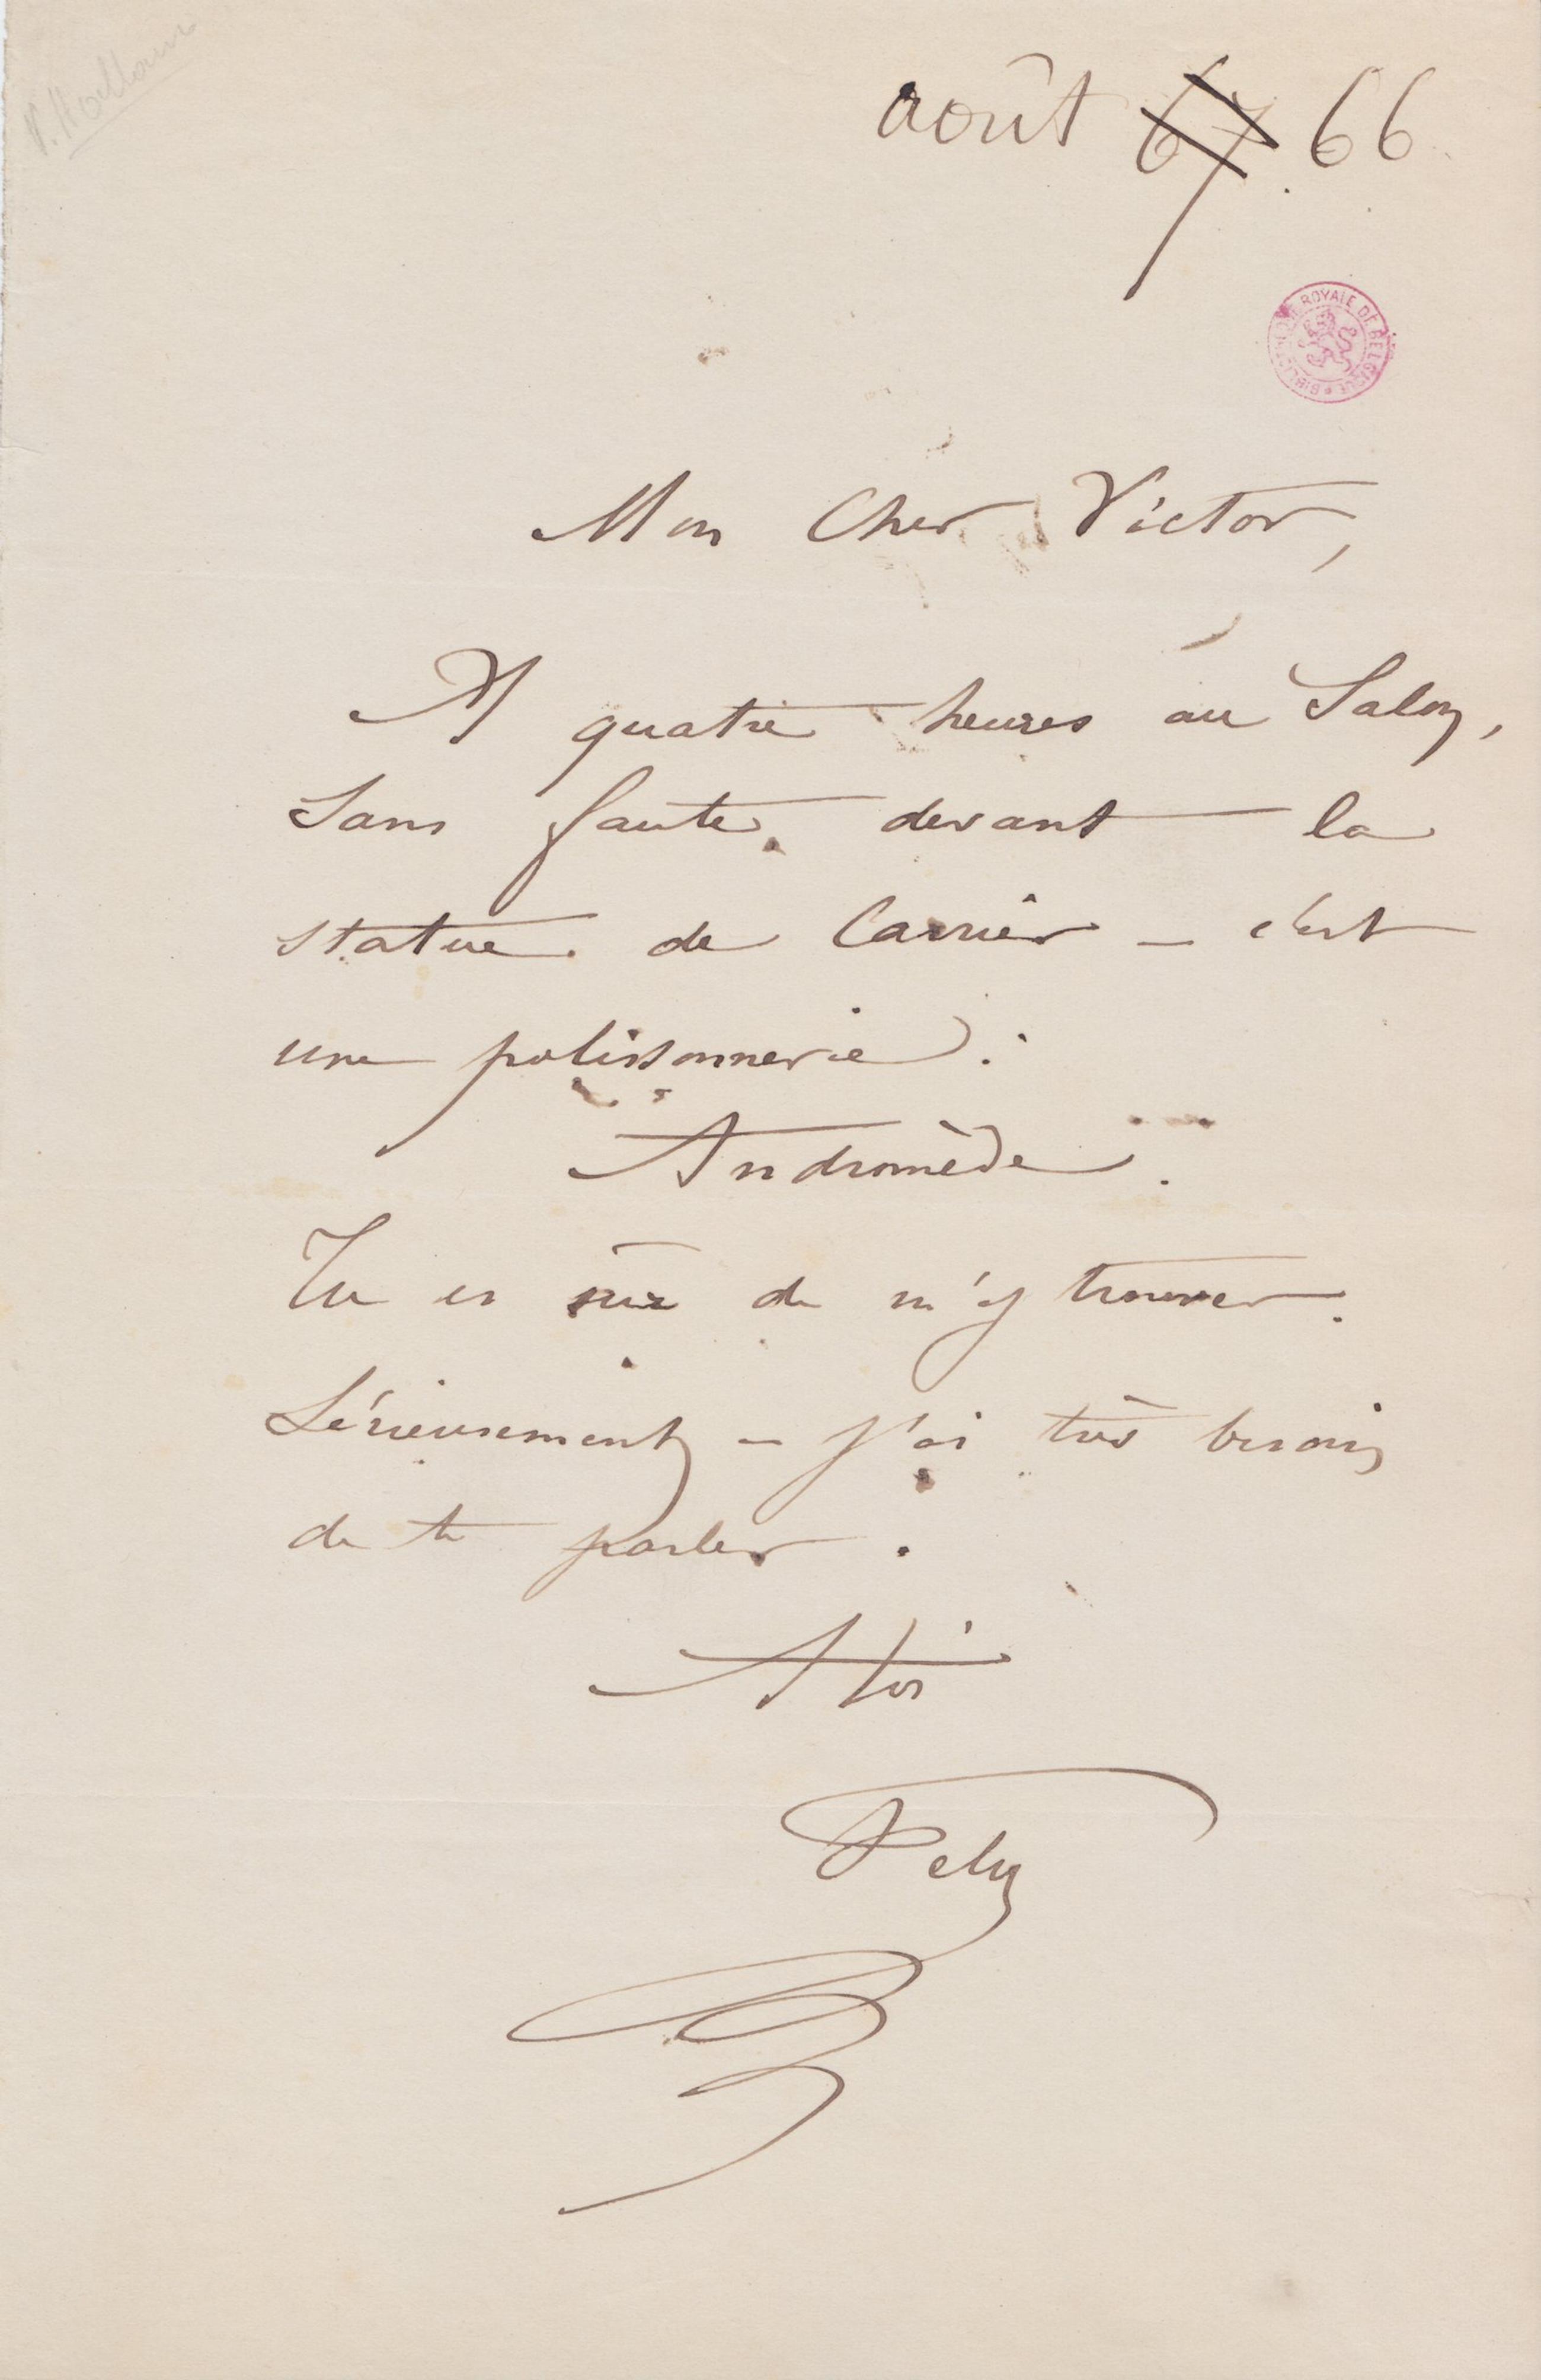 V. Hallaux
août 67 66
BIBLIOTHÈQUE ROYALE DE BELGIQUE
Mon Cher Victor,
A quatre heures au Salon,
Sans faute, devant la
statue de Carrier – c'est
une polissonnerie :
Andromède.
Tu es sûr de m'y trouver.
Sérieusement – J'ai très besoin
de te parler.
A toi
Fely